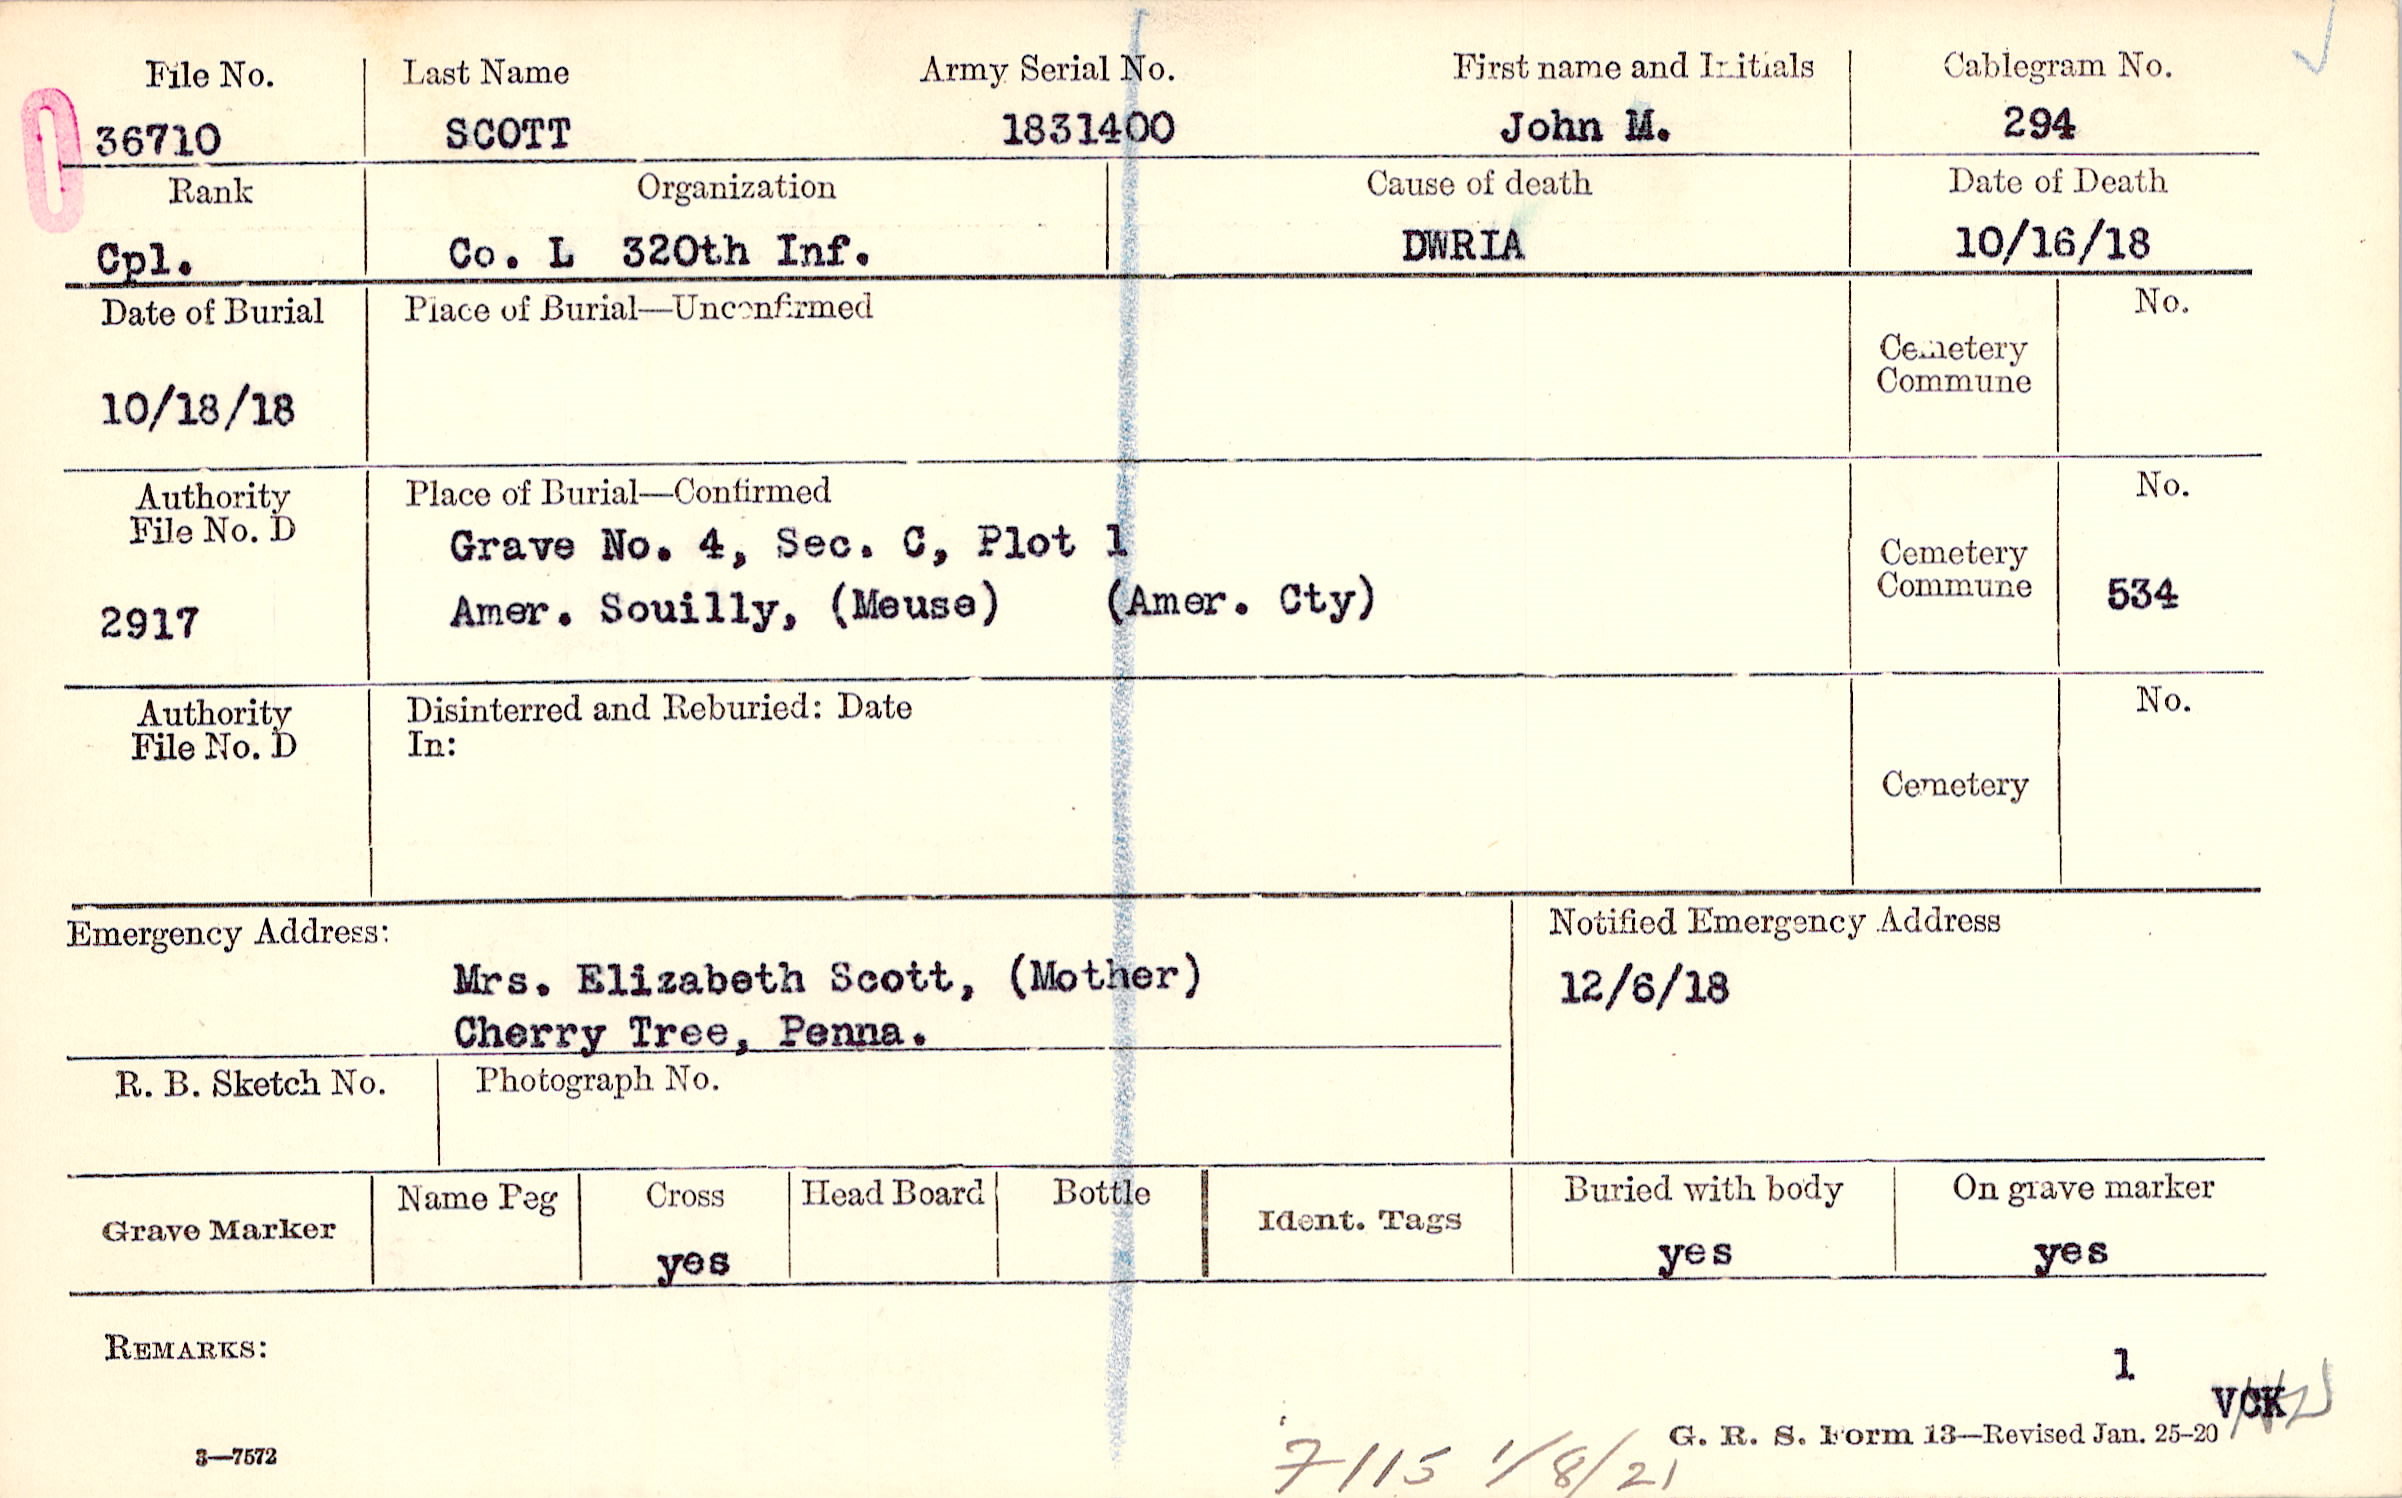 File No. Last Name Army Serial No. First name and Initials Cablegram No.
36710 SCOTT 1831400 John M. 294
Rank Organization Cause of death Date of Death
Cpl. Co. L 320th Inf. DWRIA 10/16/18
Date of Burial Place of Burial—Unconfirmed No.
Cemetery
Commune
10/18/18
Authority Place of Burial—Confirmed No.
File No. D
Grave No. 4, Sec. C, Plot 1
Cemetery
Commune 534
2917 Amer. Souilly, (Meuse) (Amer. Cty)
Authority Disinterred and Reburied: Date No.
File No. D In:
Cemetery
Emergency Address: Notified Emergency Address
Mrs. Elizabeth Scott, (Mother) 12/6/18
Cherry Tree, Penna.
R. B. Sketch No. Photograph No.
Grave Marker Name Peg Cross Head Board Bottle Ident. Tags Buried with body On grave marker
yes yes yes
REMARKS:
1
VCK
G. R. S. Form 13—Revised Jan. 25-20
3—7572
7115 1/8/21